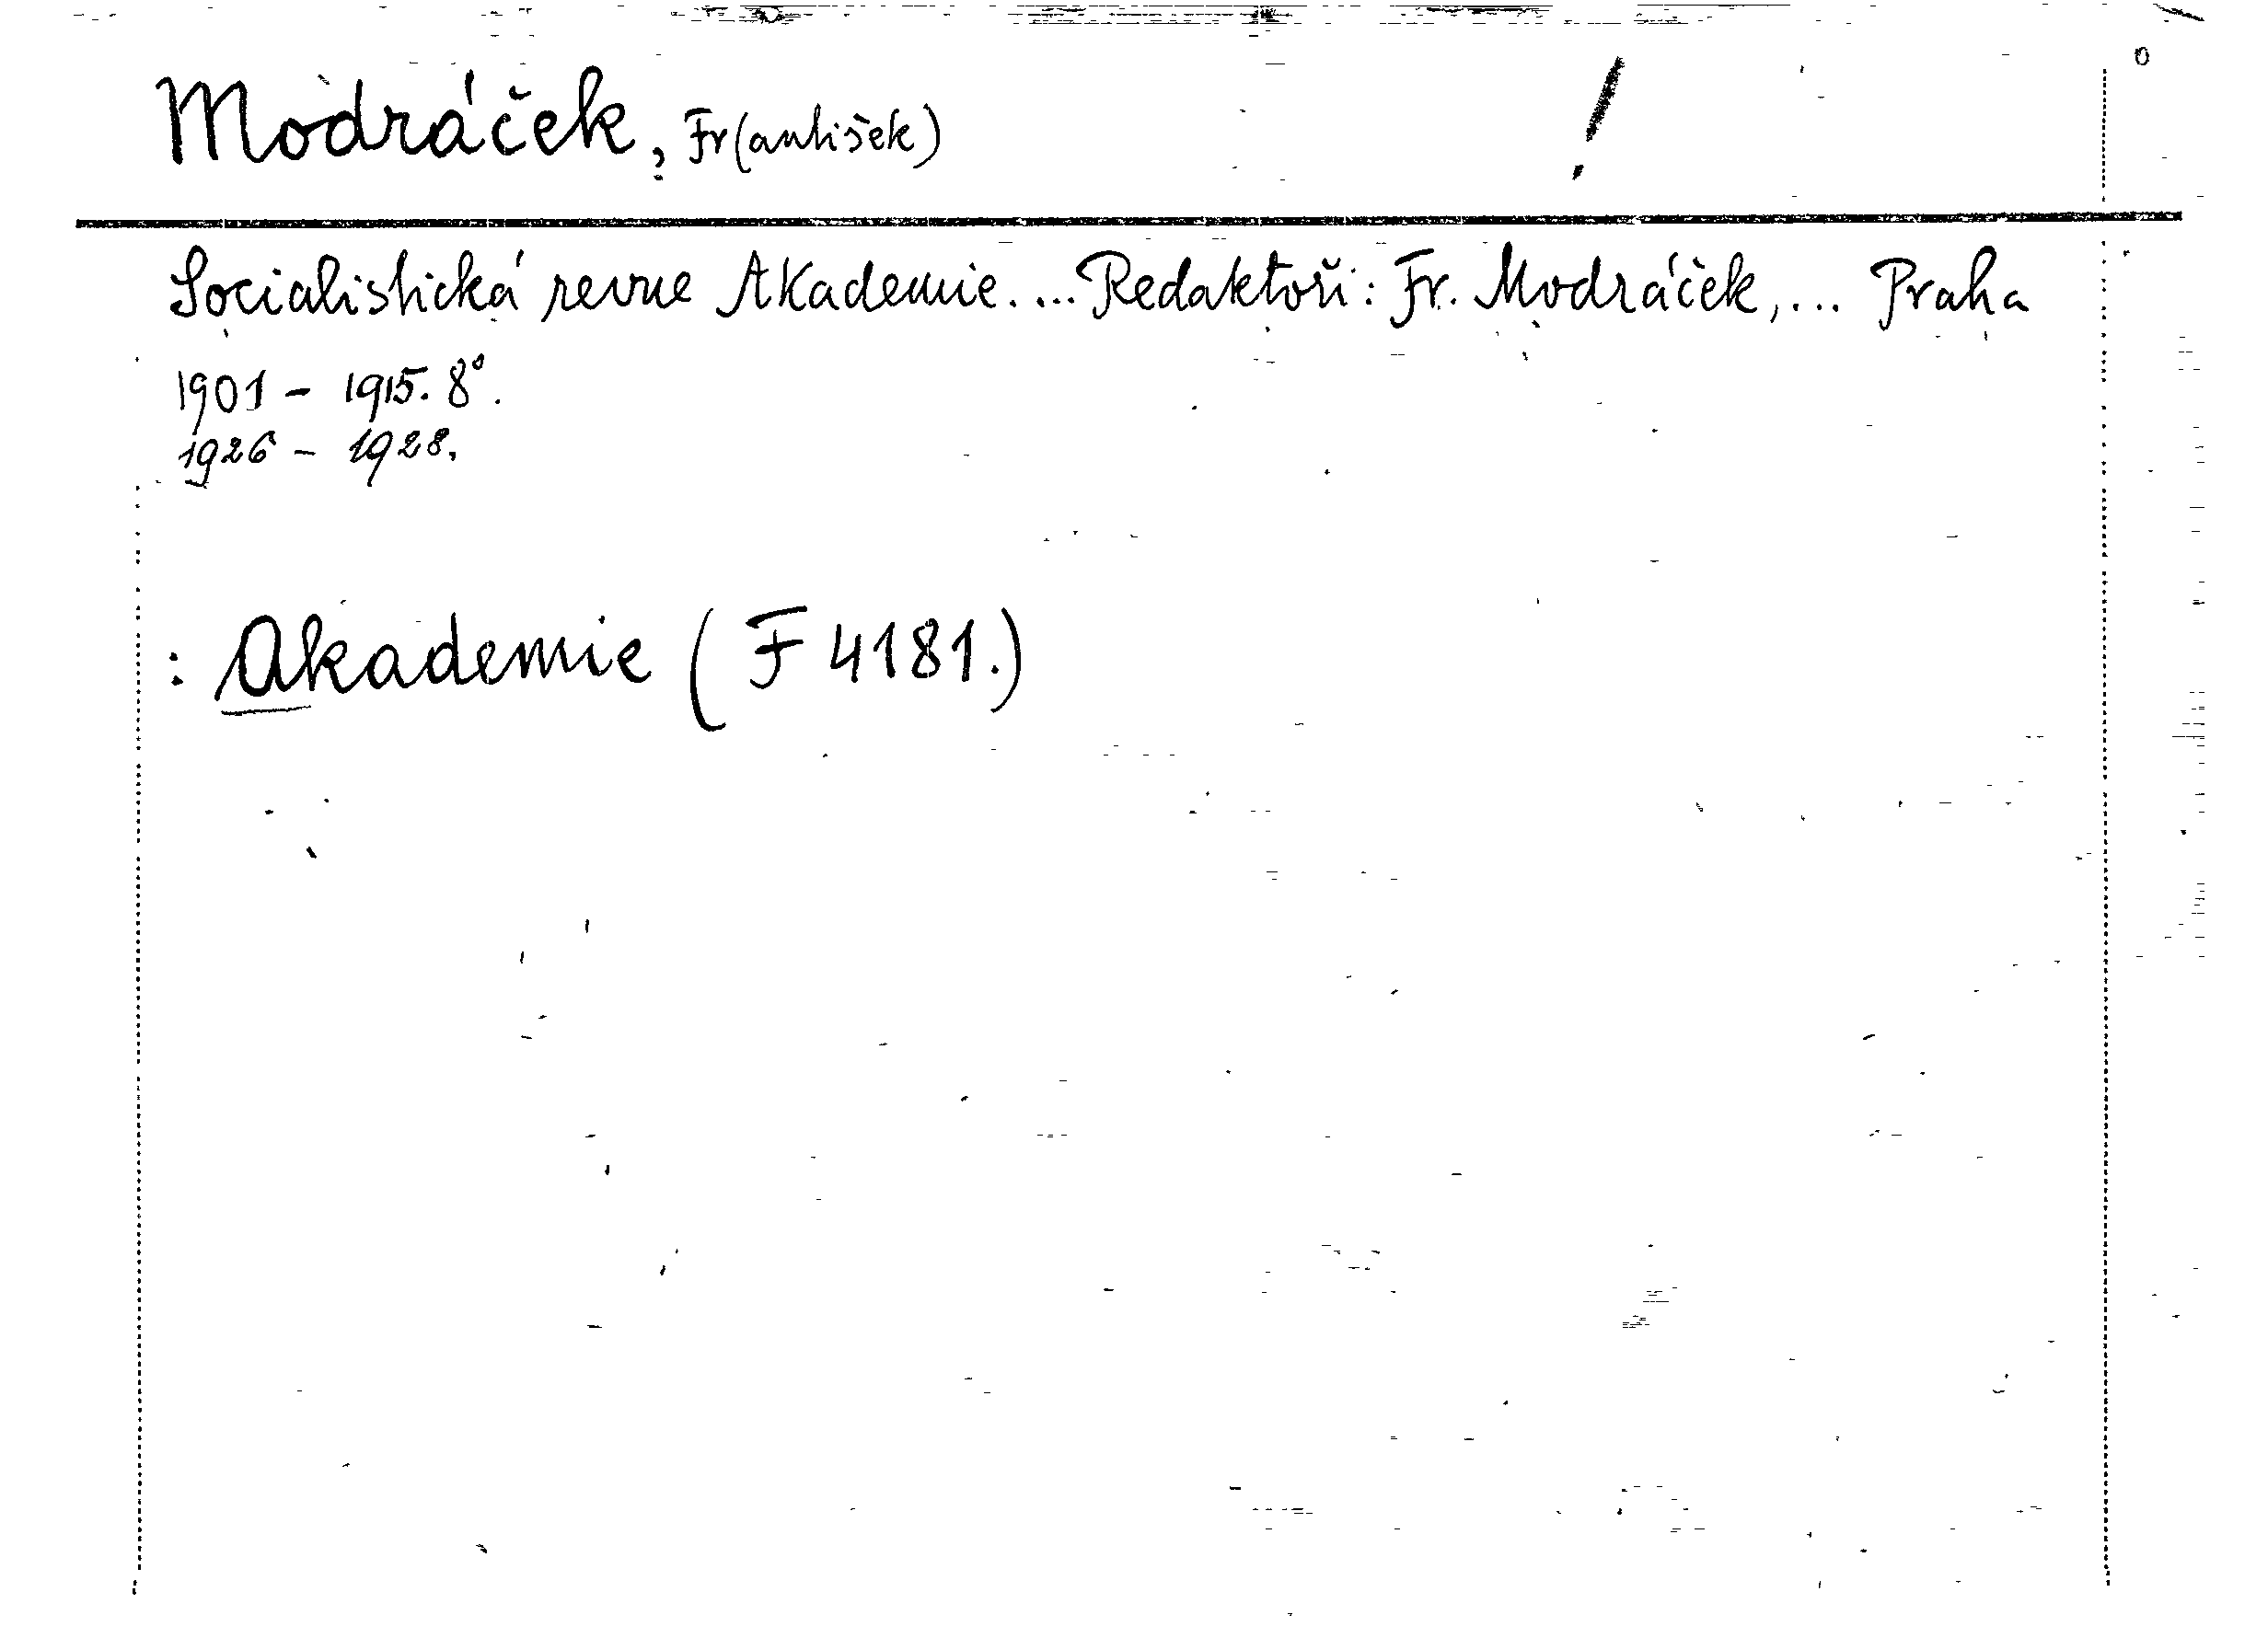 Modráček, Fr(antišek) !
Socialistická revue Akademie. ... Redaktoři: Fr. Modráček, ... Praha
1901 - 1915. 8°.
1926 - 1928.
: Akademie (F 4181.)